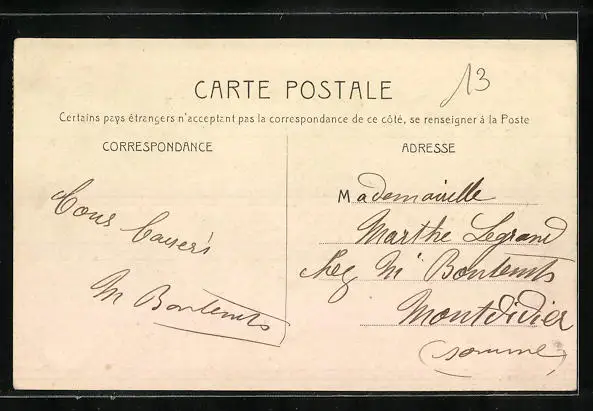 13
CARTE POSTALE
Certains pays étrangers n'acceptant pas la correspondance de ce côté, se renseigner à la Poste
CORRESPONDANCE
ADRESSE
Bons baisers
M Bontemts
Mademoiselle
Marthe Legrand
chez Mr Bontemts
Montdidier
(Somme)